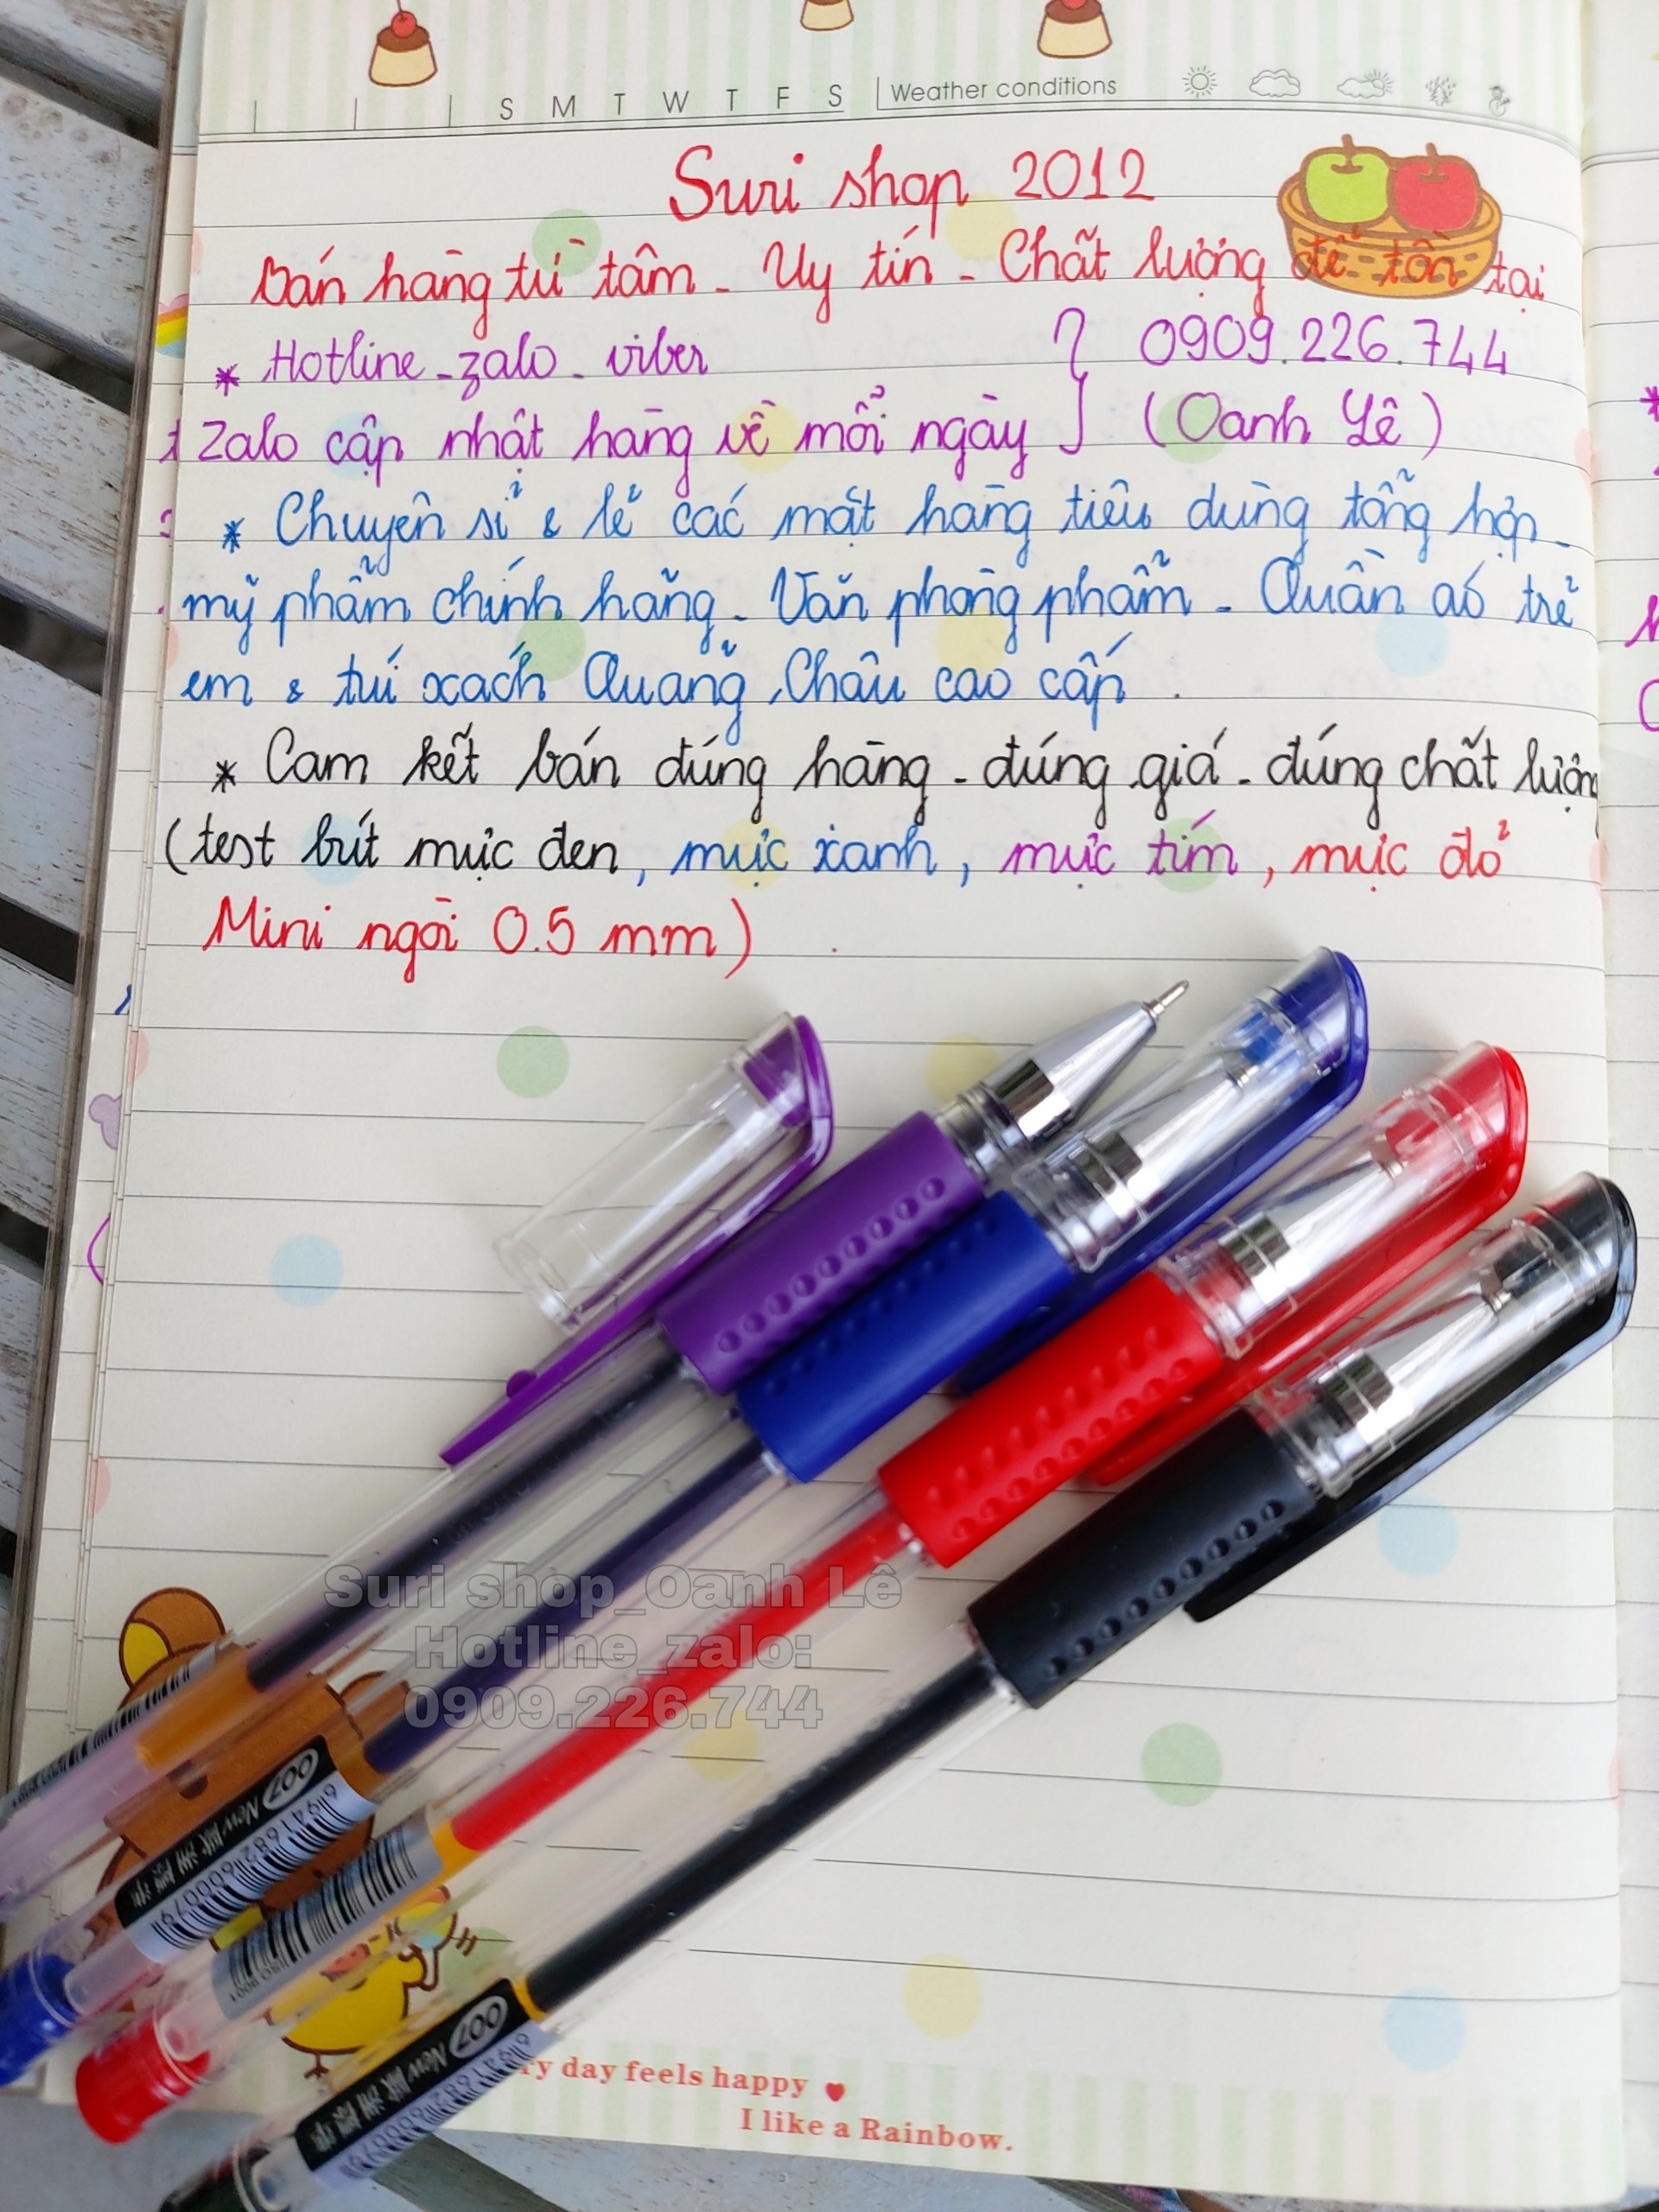 S M T W T F S Weather conditions
Suri shop 2012
Bán hàng từ tâm - Uy tín - Chất lượng để tồn tại
* Hotline - zalo - viber } 0909.226.744
Zalo cập nhật hàng về mỗi ngày } (Oanh Lê)
* Chuyên sỉ & lẻ các mặt hàng tiêu dùng tổng hợp -
mỹ phẩm chính hãng - Văn phòng phẩm - Quần áo trẻ
em & túi xách Quảng Châu cao cấp.
* Cam kết bán đúng hàng - đúng giá - đúng chất lượng
(test bút mực đen, mực xanh, mực tím, mực đỏ
Mini ngòi 0.5 mm)
Suri shop_Oanh Lê
Hotline_zalo:
0909.226.744
007 New
007 New
ry day feels happy
I like a Rainbow.